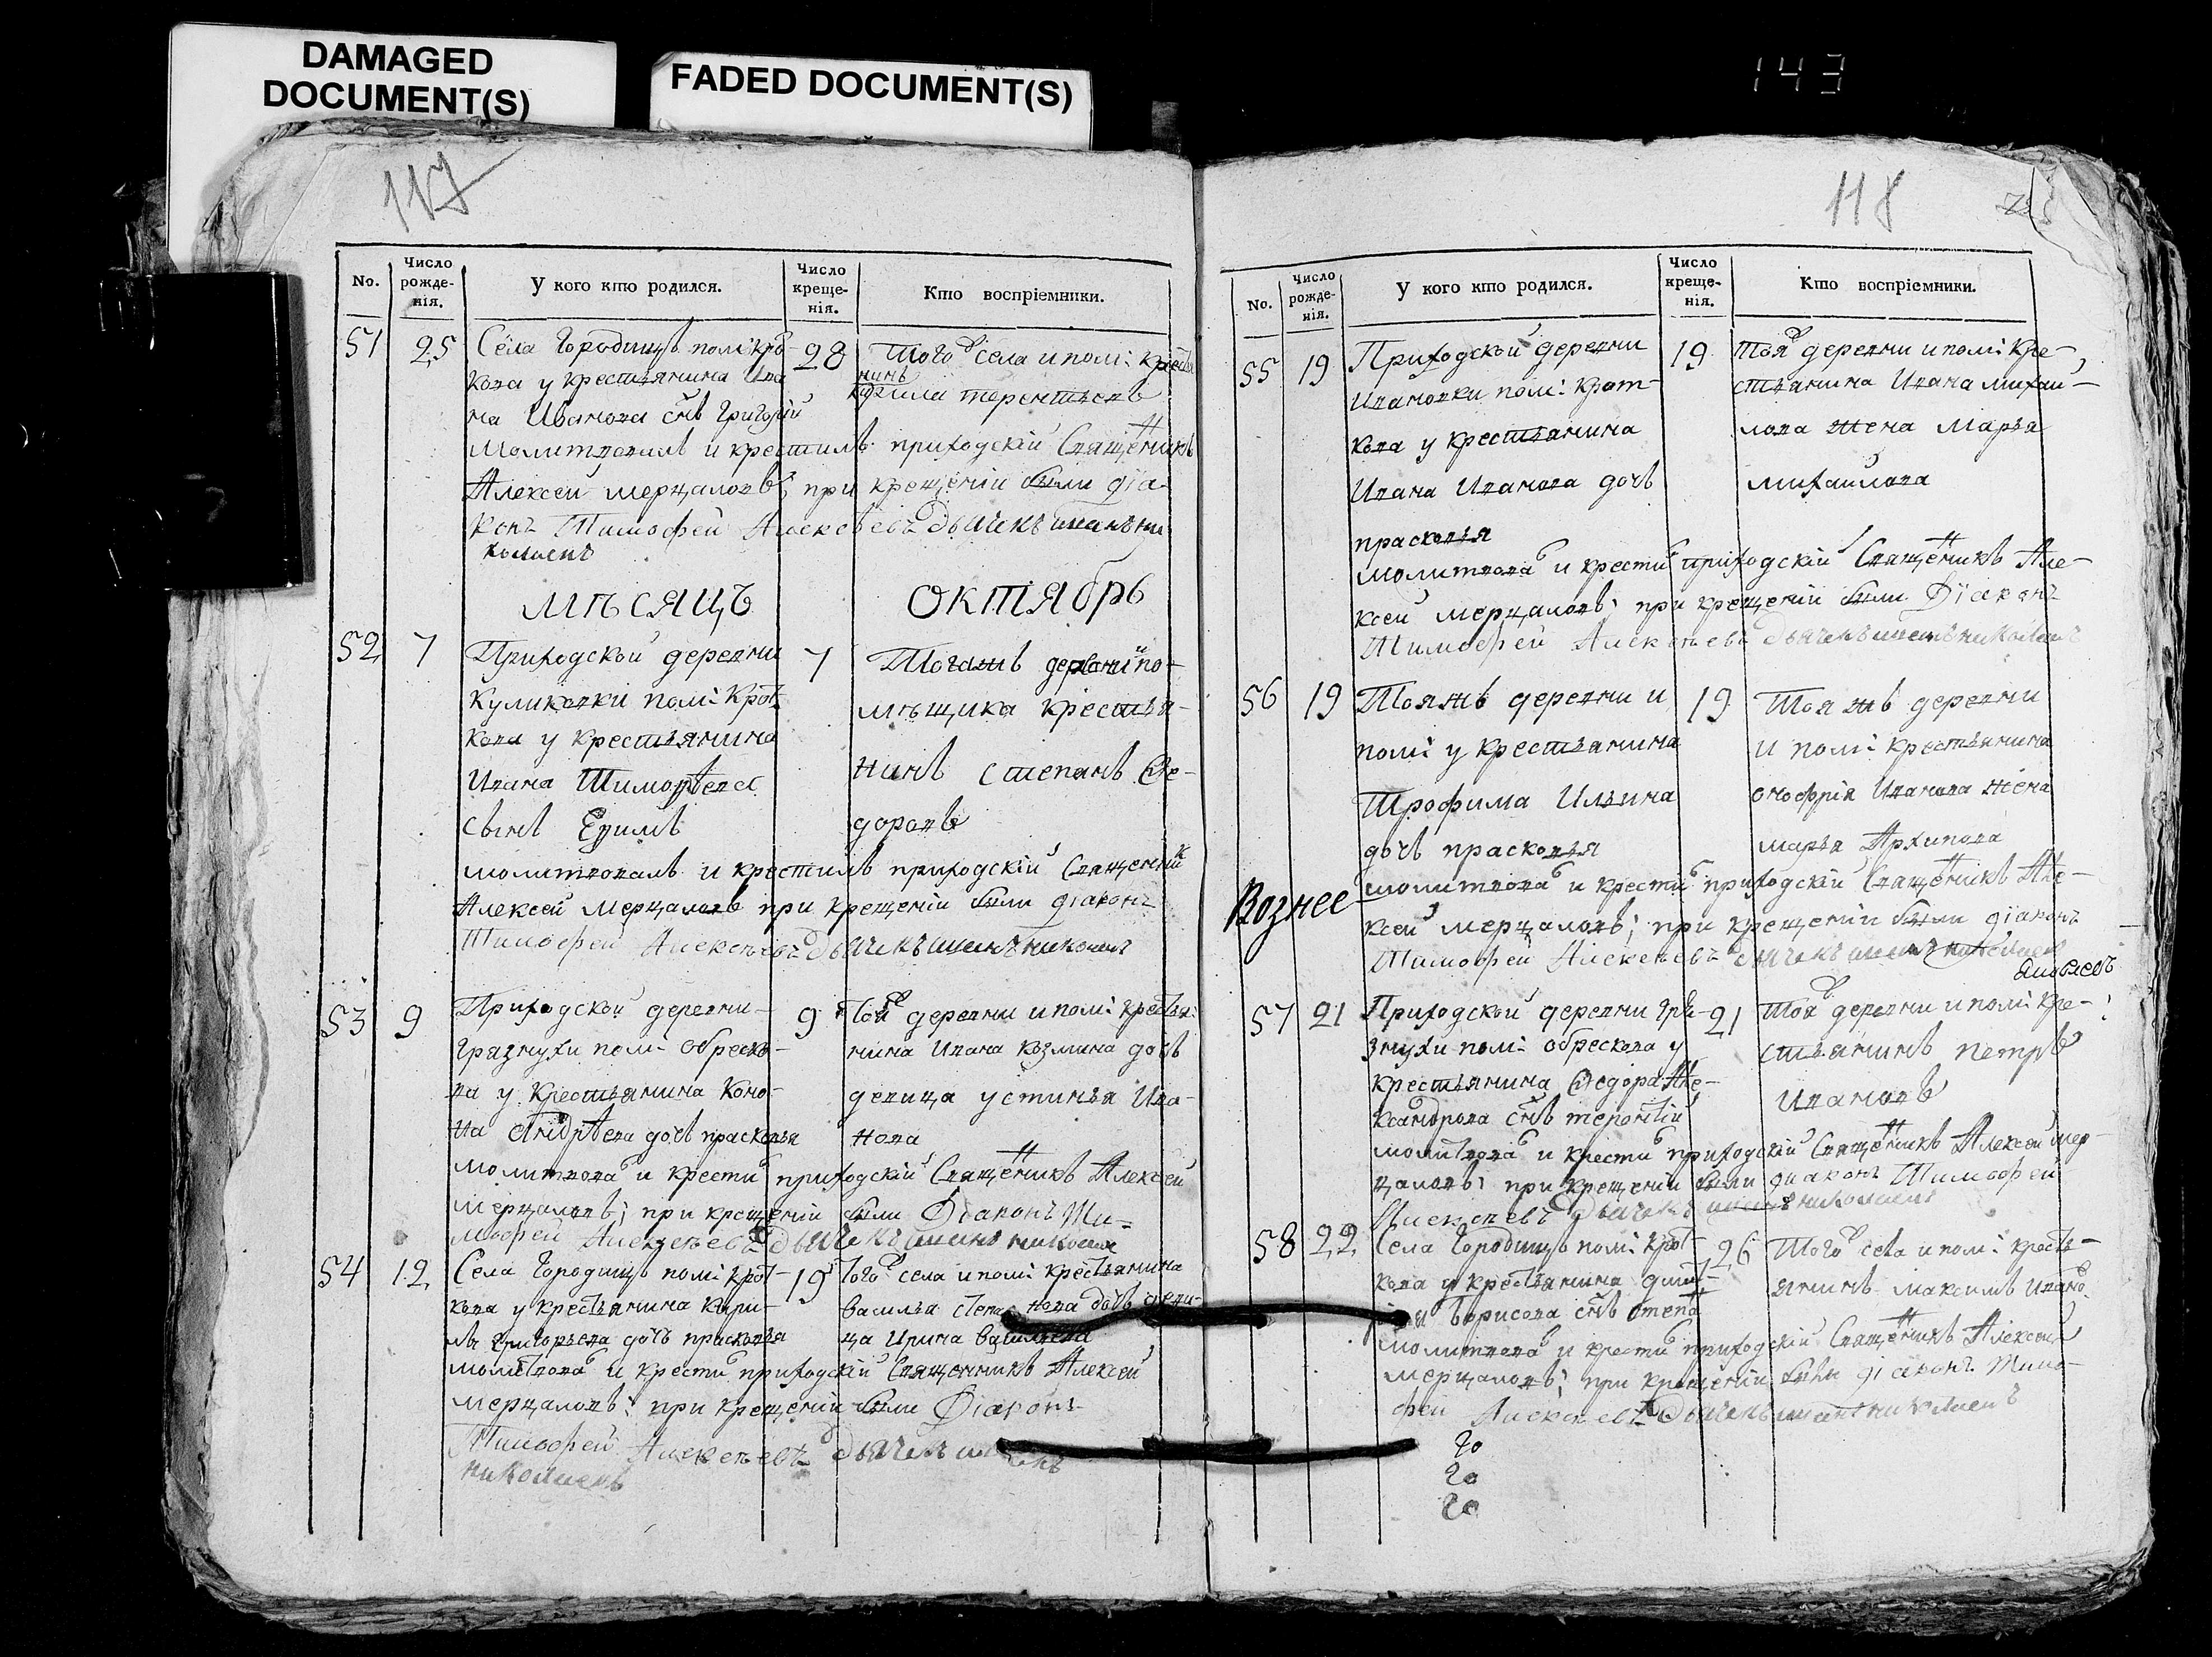 DAMAGED
DOCUMENT(S)
FADED DOCUMENT(S)
143
117
No.
Число рожденія.
У кого кто родился.
Число крещенія.
Кто воспріемники.
51 25 28
Села Городищъ пом: Крот-
кова у крестьянина Ива
на Иванова снъ Григорій
Тогожъ села и пом: крестья
нинъ
терентьевъ
молитвовалъ и крестилъ приходскій Священникъ
Алексей Мерцаловъ; при крещеніи были діа-
конъ Тимофей Алексѣевъ дьячекъ
мѣсяцъ октябрь
52 7 7
Приходской деревни
Куликовки пом: Крот
кова у крестьянина
Ивана Тимофеева
сынъ Ефимъ
деревни и по-
мѣщика крестья-
нинъ Степанъ Фе-
доровъ
молитвовалъ и крестилъ приходскій Священникъ
Алексей Мерцаловъ при крещеніи были діаконъ
Тимофей Алексѣевъ дьячекъ
53 9 9
Приходской деревни
Грязнухи пом: Обреско-
ва у крестьянина Коно-
на дочь прасковья
Тояжъ деревни и пом: крестья-
нина Ивана Козмина дочь
девица устинья Ива-
нова
молитвова и крести приходскій Священникъ Алексей
Мерцаловъ; при крещеніи были Діаконъ Ти-
мофей Алексѣевъ дьячекъ
54 12 19
Села Городищъ пом: Крот-
кова у крестьянина Кири-
лы Григорьева дочь прасковья
Тогожъ села и пом: крестьянина
василья дочь девица
Ирина васильева
молитвова и крести приходскій Священникъ Алексей
Мерцаловъ: при крещеніи были Діаконъ
Тимофей Алексѣевъ дьячекъ
118
No.
Число рожденія.
У кого кто родился.
Число крещенія.
Кто воспріемники.
55 19 19
Приходской деревни
Ивановки пом: Крот-
кова у крестьянина
Ивана Иванова дочь
прасковья
Тояжъ деревни и пом: кре-
стьянина Ивана Михай-
лова жена Марья
михайлова
молитвова и крести приходскій Священникъ Але-
ксей Мерцаловъ; при крещеніи были Діаконъ
Тимофей Алексѣевъ дьячекъ
56 19 19
Тояжъ деревни и
пом: у крестьянина
Трофима Ильина
дочь прасковья
Тояжъ деревни
и пом: крестьянина
онофрія Иванова жена
марья Архипова
Вознее
молитвова и крести приходскій Священникъ Але-
ксей Мерцаловъ; при крещеніи были діаконъ
Тимофей Алексѣевъ дьячекъ
57 21 21
Приходской деревни Гря-
знухи пом: Обрескова у
крестьянина Федора Але-
ксандрова снъ терентій
Тояжъ деревни и пом: кре-
стьянинъ петръ
Ивановъ
молитвова и крести приходскій Священникъ Алексей Мер-
цаловъ: при крещеніи были діаконъ Тимофей
Алексѣевъ дьячекъ
58 22 26
Села Городищъ пом: Крот-
кова у крестьянина
Борисова снъ степа
Тогожъ села и пом: кресть-
янинъ максимъ
молитвова и крести приходскій Священникъ Алексей
Мерцаловъ; при крещеніи были діаконъ Тимо-
фей Алексѣевъ дьячекъ